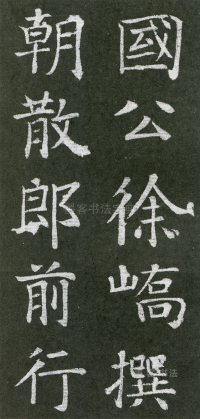 國公徐嶠撰
朝散郎前行